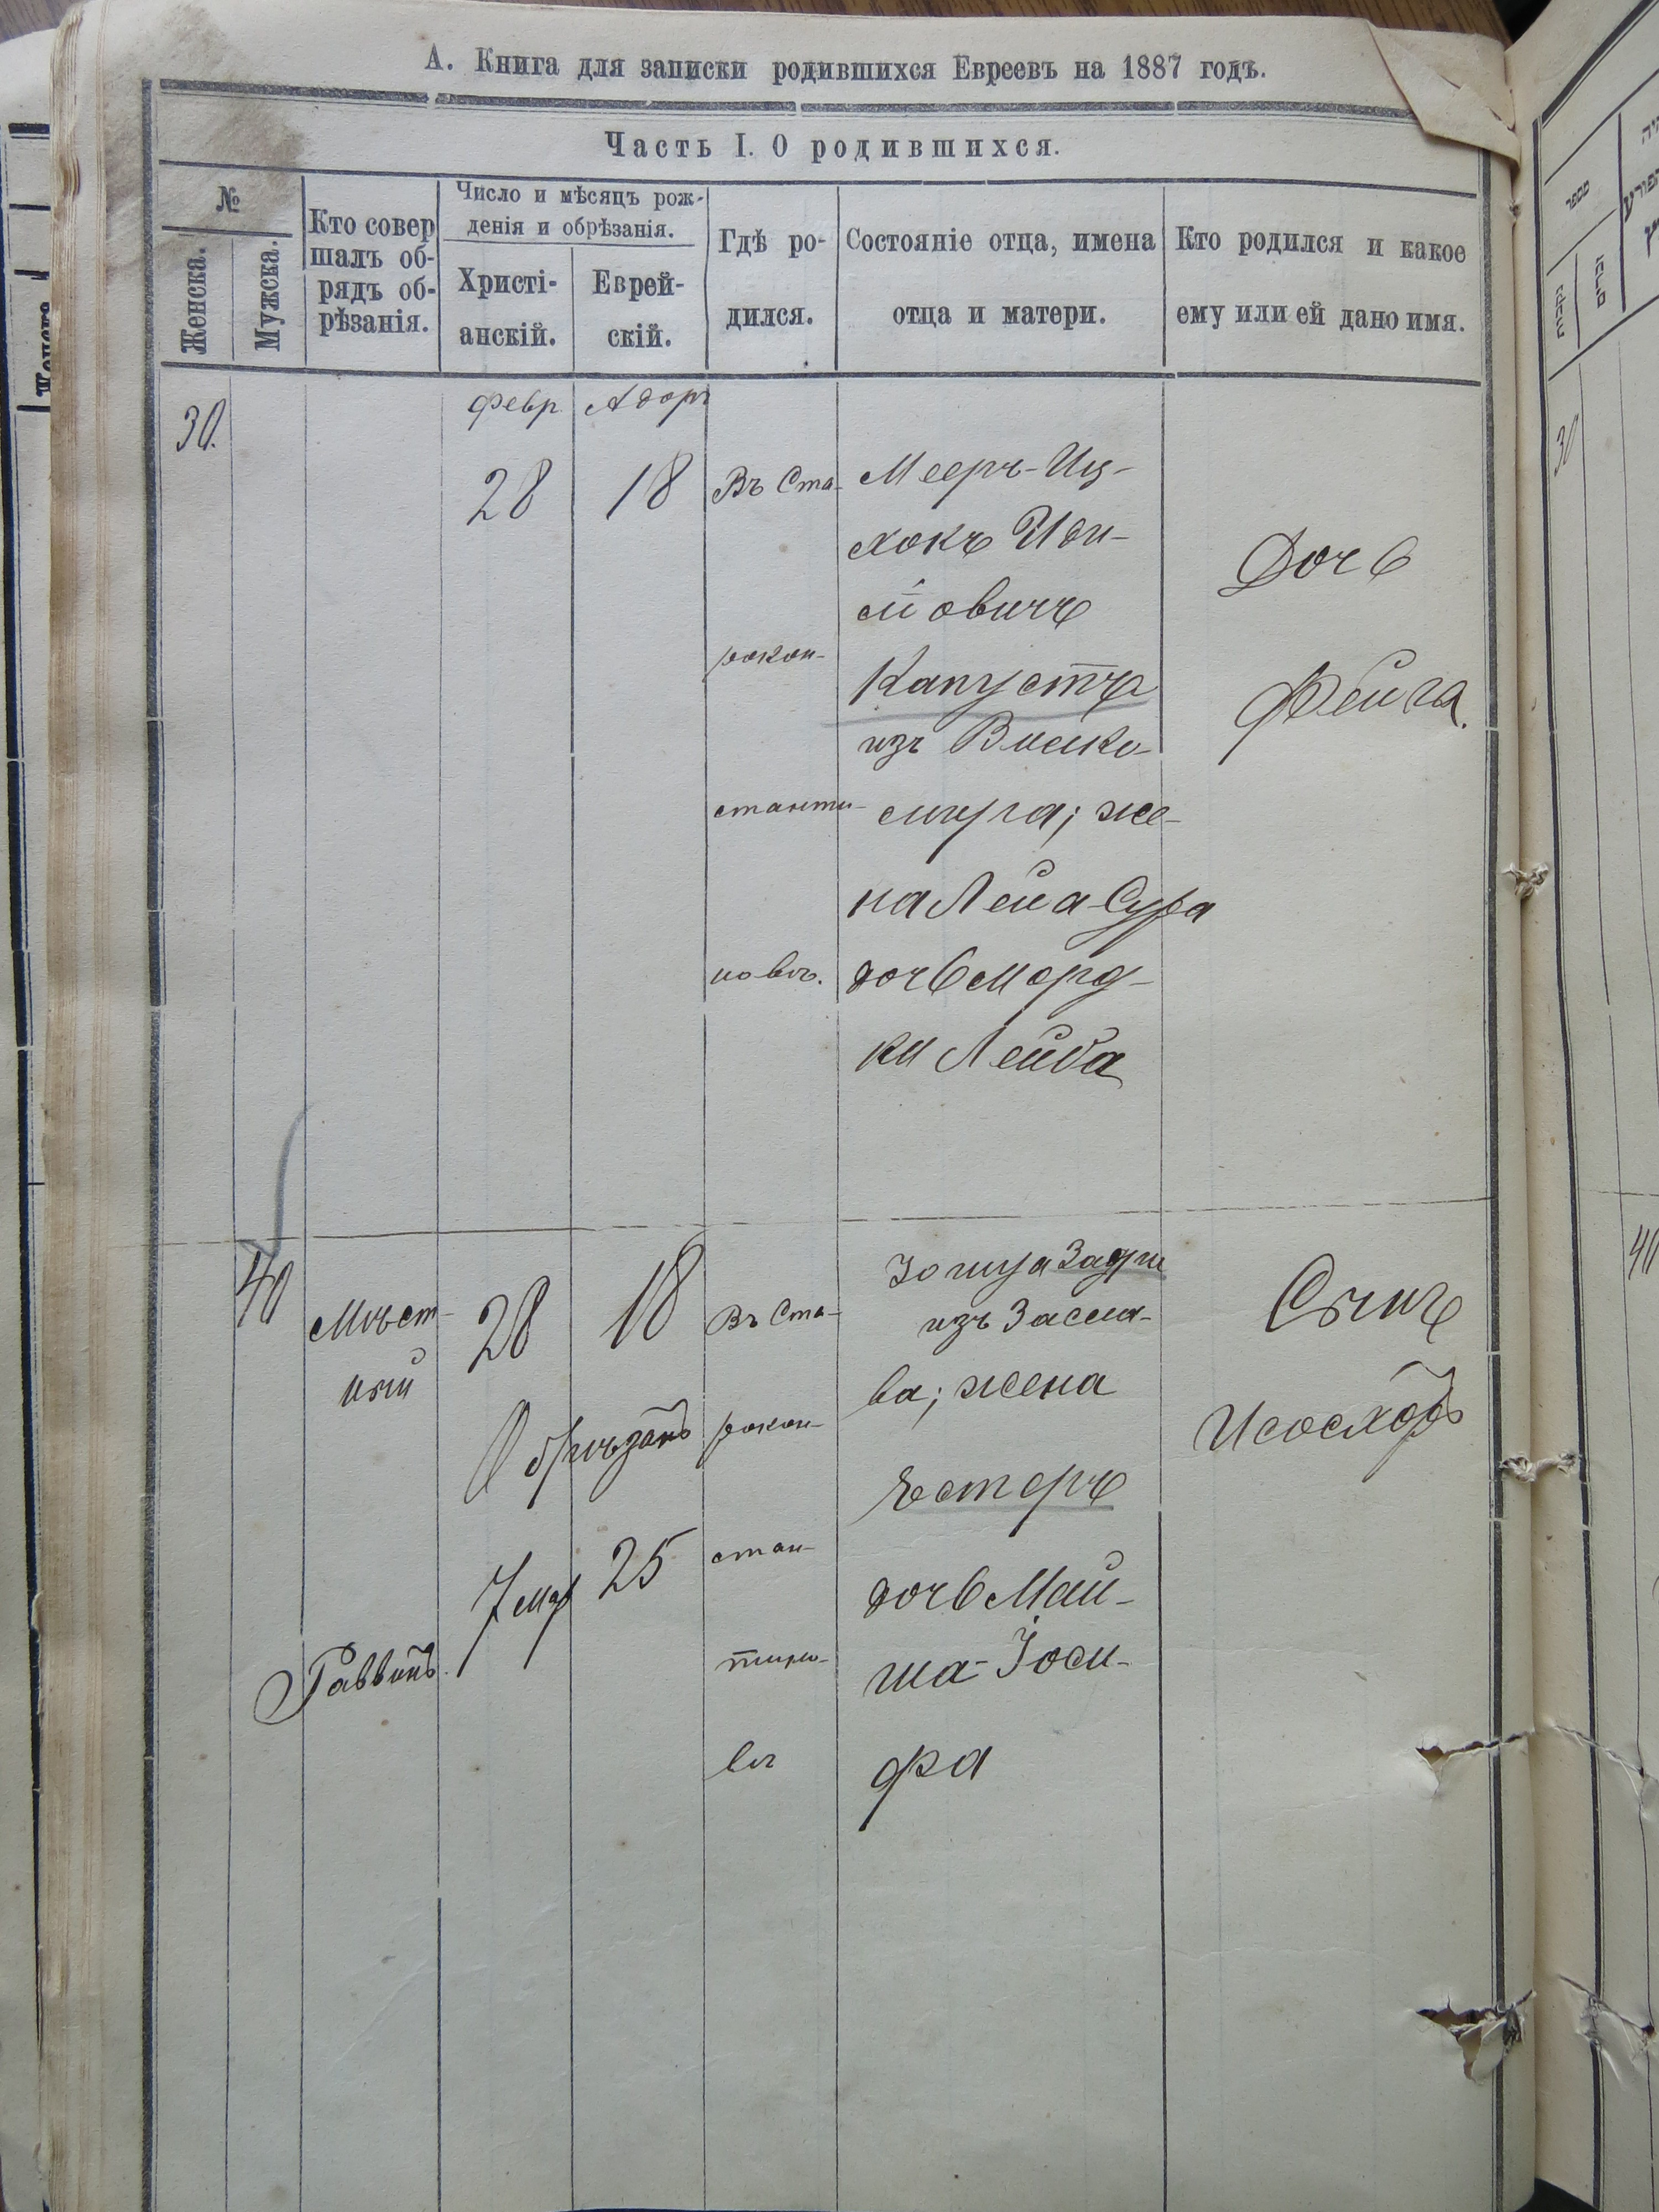 А. Книга для записки родившихся Евреевъ на 1887 годъ.
Часть I. О родившихся.
№
Женска.
Мужска.
Кто совер
шалъ об-
рядъ об-
рѣзанія.
Число и мѣсяцъ рож-
денія и обрѣзанія.
Христі-
анскій.
Еврей-
скій.
Гдѣ ро-
дился.
Состояніе отца, имена
отца и матери.
Кто родился и какое
ему или ей дано имя.
30.
Февр
28
Адоръ
18
Въ Ста-
рокон-
станти-
новъ.
Мееръ-Иц-
хокъ
овичъ
Капустъ
изъ
мира; же-
на Лея-Сура
дочь Морд-
ки Лейба
Дочь
Фейга.
40
Мѣст-
ный
Раввинъ.
28
18
Обрѣзанъ
7 мар
25
Въ Ста-
рокон-
стан-
тино-
въ
Іошуа
изъ Засла-
ва; жена
Естеръ
дочь Май-
ша-Іоси-
фа
Сынъ
Исосхоръ
30
40
מספר
נקבות
זכרים